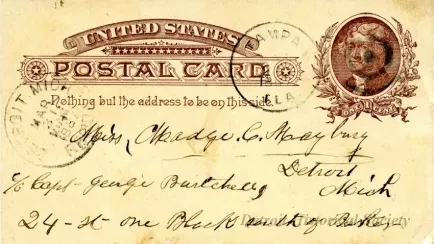 UNITED STATES
POSTAL CARD
Nothing but the address to be on this side.
TAMPA
FLA
DETROIT MICH
MAR
Miss, Madge C. Maybury
Detroit
Mich
c/o Capt- George Burtchell,
24- st one Block
Detroit Historical Society